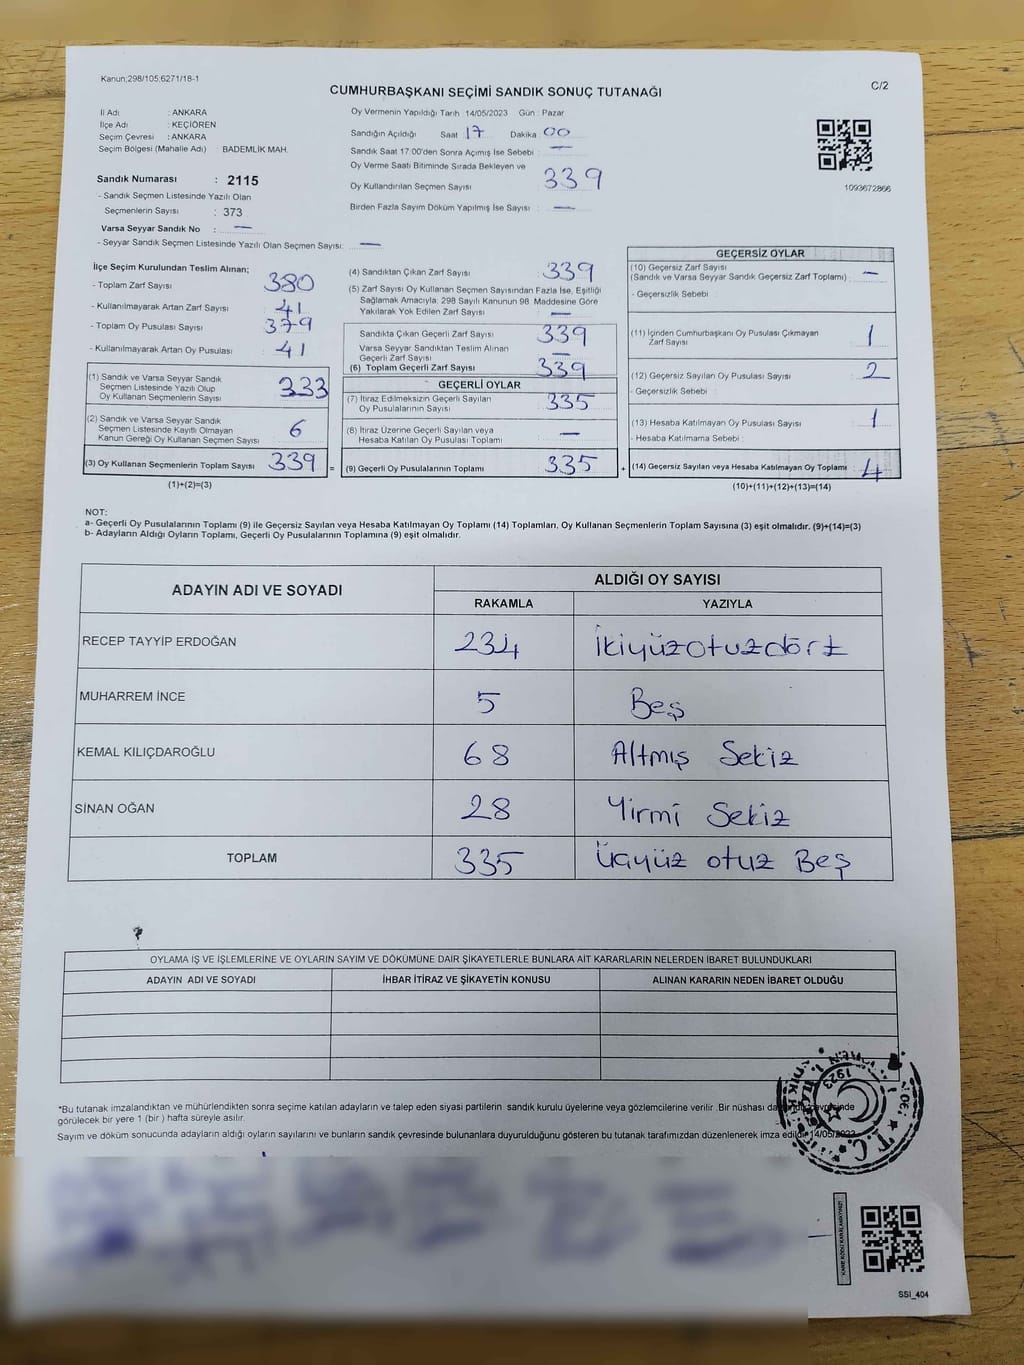 Kanun;298/105;6271/18-1
C/2
CUMHURBAŞKANI SEÇİMİ SANDIK SONUÇ TUTANAĞI
İl Adı : ANKARA
İlçe Adı : KEÇİÖREN
Seçim Çevresi : ANKARA
Seçim Bölgesi (Mahalle Adı) : BADEMLİK MAH.
Sandık Numarası : 2115
- Sandık Seçmen Listesinde Yazılı Olan
Seçmenlerin Sayısı : 373
Varsa Seyyar Sandık No : —
- Seyyar Sandık Seçmen Listesinde Yazılı Olan Seçmen Sayısı: —
Oy Vermenin Yapıldığı Tarih 14/05/2023 Gün : Pazar
Sandığın Açıldığı Saat 17 Dakika 00
Sandık Saat 17:00'den Sonra Açımış İse Sebebi : —
Oy Verme Saati Bitiminde Sırada Bekleyen ve
Oy Kullandırılan Seçmen Sayısı 339
Birden Fazla Sayım Döküm Yapılmış İse Sayısı : —
1093672866
İlçe Seçim Kurulundan Teslim Alınan;
- Toplam Zarf Sayısı 380
- Kullanılmayarak Artan Zarf Sayısı : 41
- Toplam Oy Pusulası Sayısı : 379
- Kullanılmayarak Artan Oy Pusulası : 41
(1) Sandık ve Varsa Seyyar Sandık
Seçmen Listesinde Yazılı Olup
Oy Kullanan Seçmenlerin Sayısı 333
(2) Sandık ve Varsa Seyyar Sandık
Seçmen Listesinde Kayıtlı Olmayan
Kanun Gereği Oy Kullanan Seçmen Sayısı 6
(3) Oy Kullanan Seçmenlerin Toplam Sayısı 339 =
(1)+(2)=(3)
(4) Sandıktan Çıkan Zarf Sayısı 339
(5) Zarf Sayısı Oy Kullanan Seçmen Sayısından Fazla İse, Eşitliği
Sağlamak Amacıyla; 298 Sayılı Kanunun 98. Maddesine Göre
Yakılarak Yok Edilen Zarf Sayısı : —
Sandıkta Çıkan Geçerli Zarf Sayısı 339
Varsa Seyyar Sandıktan Teslim Alınan
Geçerli Zarf Sayısı —
(6) Toplam Geçerli Zarf Sayısı 339
GEÇERLİ OYLAR
(7) İtiraz Edilmeksizin Geçerli Sayılan
Oy Pusulalarının Sayısı 335
(8) İtiraz Üzerine Geçerli Sayılan veya
Hesaba Katılan Oy Pusulası Toplamı —
(9) Geçerli Oy Pusulalarının Toplamı 335 +
GEÇERSİZ OYLAR
(10) Geçersiz Zarf Sayısı
(Sandık ve Varsa Seyyar Sandık Geçersiz Zarf Toplamı) : —
- Geçersizlik Sebebi :
(11) İçinden Cumhurbaşkanı Oy Pusulası Çıkmayan
Zarf Sayısı 1
(12) Geçersiz Sayılan Oy Pusulası Sayısı 2
- Geçersizlik Sebebi :
(13) Hesaba Katılmayan Oy Pusulası Sayısı 1
- Hesaba Katılmama Sebebi :
(14) Geçersiz Sayılan veya Hesaba Katılmayan Oy Toplamı : 4
(10)+(11)+(12)+(13)=(14)
NOT:
a- Geçerli Oy Pusulalarının Toplamı (9) ile Geçersiz Sayılan veya Hesaba Katılmayan Oy Toplamı (14) Toplamları, Oy Kullanan Seçmenlerin Toplam Sayısına (3) eşit olmalıdır. (9)+(14)=(3)
b- Adayların Aldığı Oyların Toplamı, Geçerli Oy Pusulalarının Toplamına (9) eşit olmalıdır.
ADAYIN ADI VE SOYADI ALDIĞI OY SAYISI
RAKAMLA YAZIYLA
RECEP TAYYİP ERDOĞAN 234 İkiyüzotuzdört
MUHARREM İNCE 5 Beş
KEMAL KILIÇDAROĞLU 68 Altmış Sekiz
SİNAN OĞAN 28 Yirmi Sekiz
TOPLAM 335 Üçyüz otuz Beş
OYLAMA İŞ VE İŞLEMLERİNE VE OYLARIN SAYIM VE DÖKÜMÜNE DAİR ŞİKAYETLERLE BUNLARA AİT KARARLARIN NELERDEN İBARET BULUNDUKLARI
ADAYIN ADI VE SOYADI İHBAR İTİRAZ VE ŞİKAYETİN KONUSU ALINAN KARARIN NEDEN İBARET OLDUĞU
*Bu tutanak imzalandıktan ve mühürlendikten sonra seçime katılan adayların ve talep eden siyasi partilerin sandık kurulu üyelerine veya gözlemcilerine verilir .Bir nüshası da
görülecek bir yere 1 (bir ) hafta süreyle asılır.
Sayım ve döküm sonucunda adayların aldığı oyların sayılarını ve bunların sandık çevresinde bulunanlara duyurulduğunu gösteren bu tutanak tarafımızdan düzenlenerek imza edildi. 14/05/2023
T.C.
SSI_404